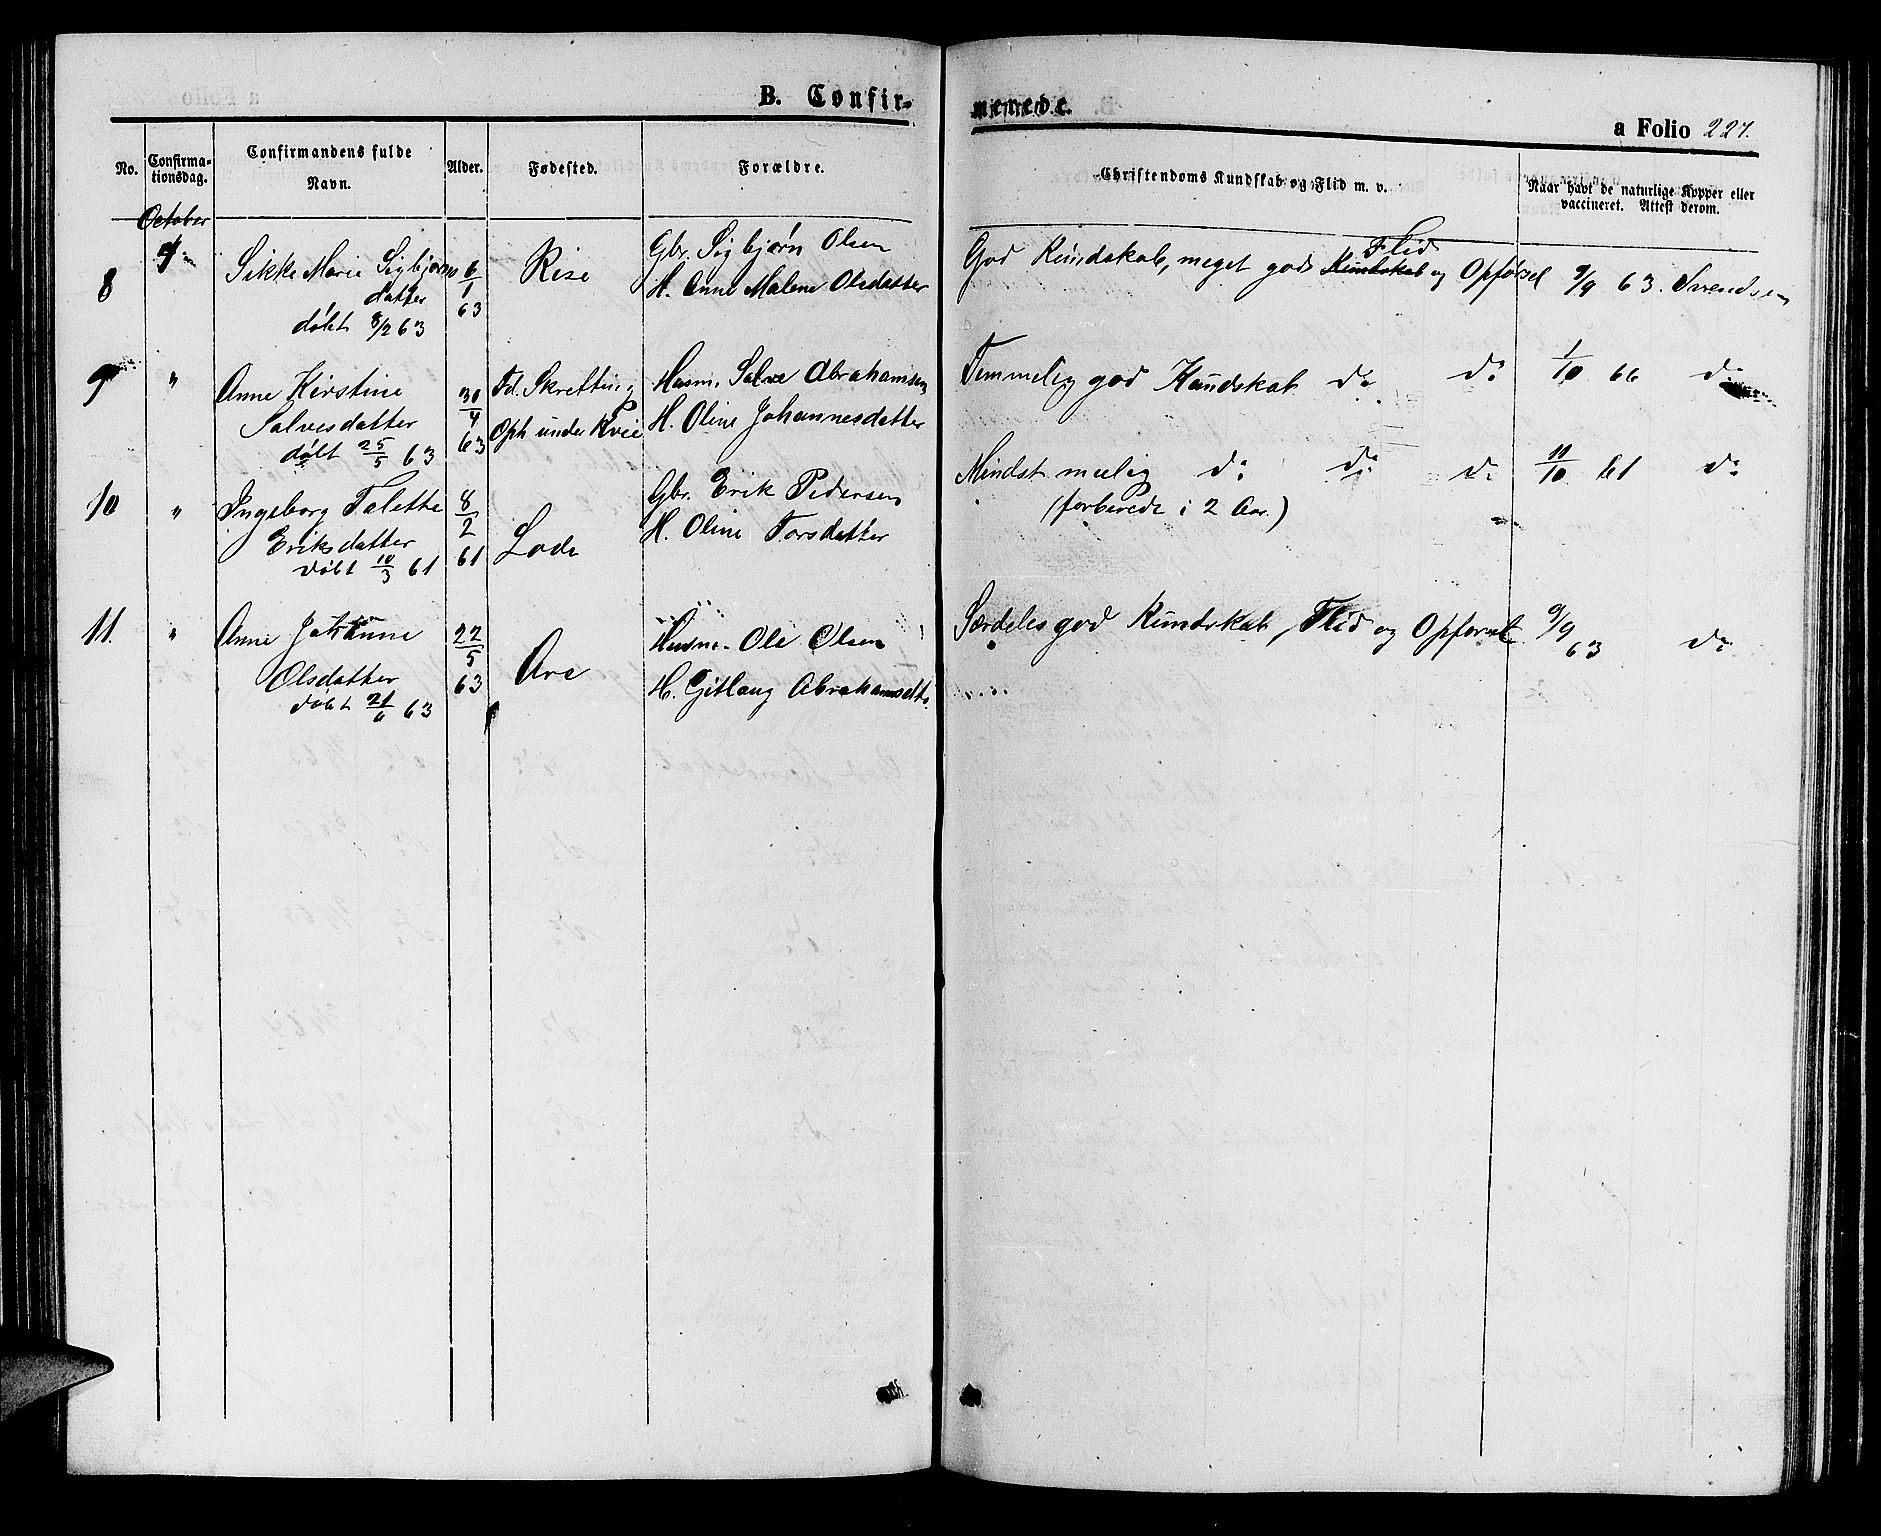 B. Confir-
menede.
a Folio 227.
No.
Confirma-
tionsdag.
Confirmandens fulde
Navn.
Alder.
Fødested.
Forældre.
Christendoms Kundskab og Flid m. v.
Naar havt de naturlige Kopper eller
vaccineret. Attest derom.
October
8
Sikke Marie Sigbjørns
datter
døbt 8/2 63
6/1
63
Rise
Gbr. Sigbjørn Olsen
H. Anne Malene Olsdatter
Flid
God Kundskab, meget god Kundskab og Opførsel
9/9 63. Svendsen
9
"
Anne Kirstine
Salvesdatter
døbt 25/5 63
30/4
63
Fd. Skretting
Oph under Kvie
Husm. Salve Abrahamsen
H. Oline Johannesdatter
Temmelig god Kundskab do do
1/10 66 do
10
"
Ingeborg Talette
Eriksdatter
døbt 10/3 61
8/2
61
Lode
Gbr. Erik Pedersen
H. Oline Torsdatter
Mindst meelig do do do
(forberedt i 2 Aar.)
11/10 61 do
11.
"
Anne Johanne
Olsdatter
døbt 21/6 63
22/5
63
Are
Husm. Ole Olsen
H. Gitlaug Abrahamsdtr.
Særdeles god Kundskab, Flid og Opførsel
9/9 63 do